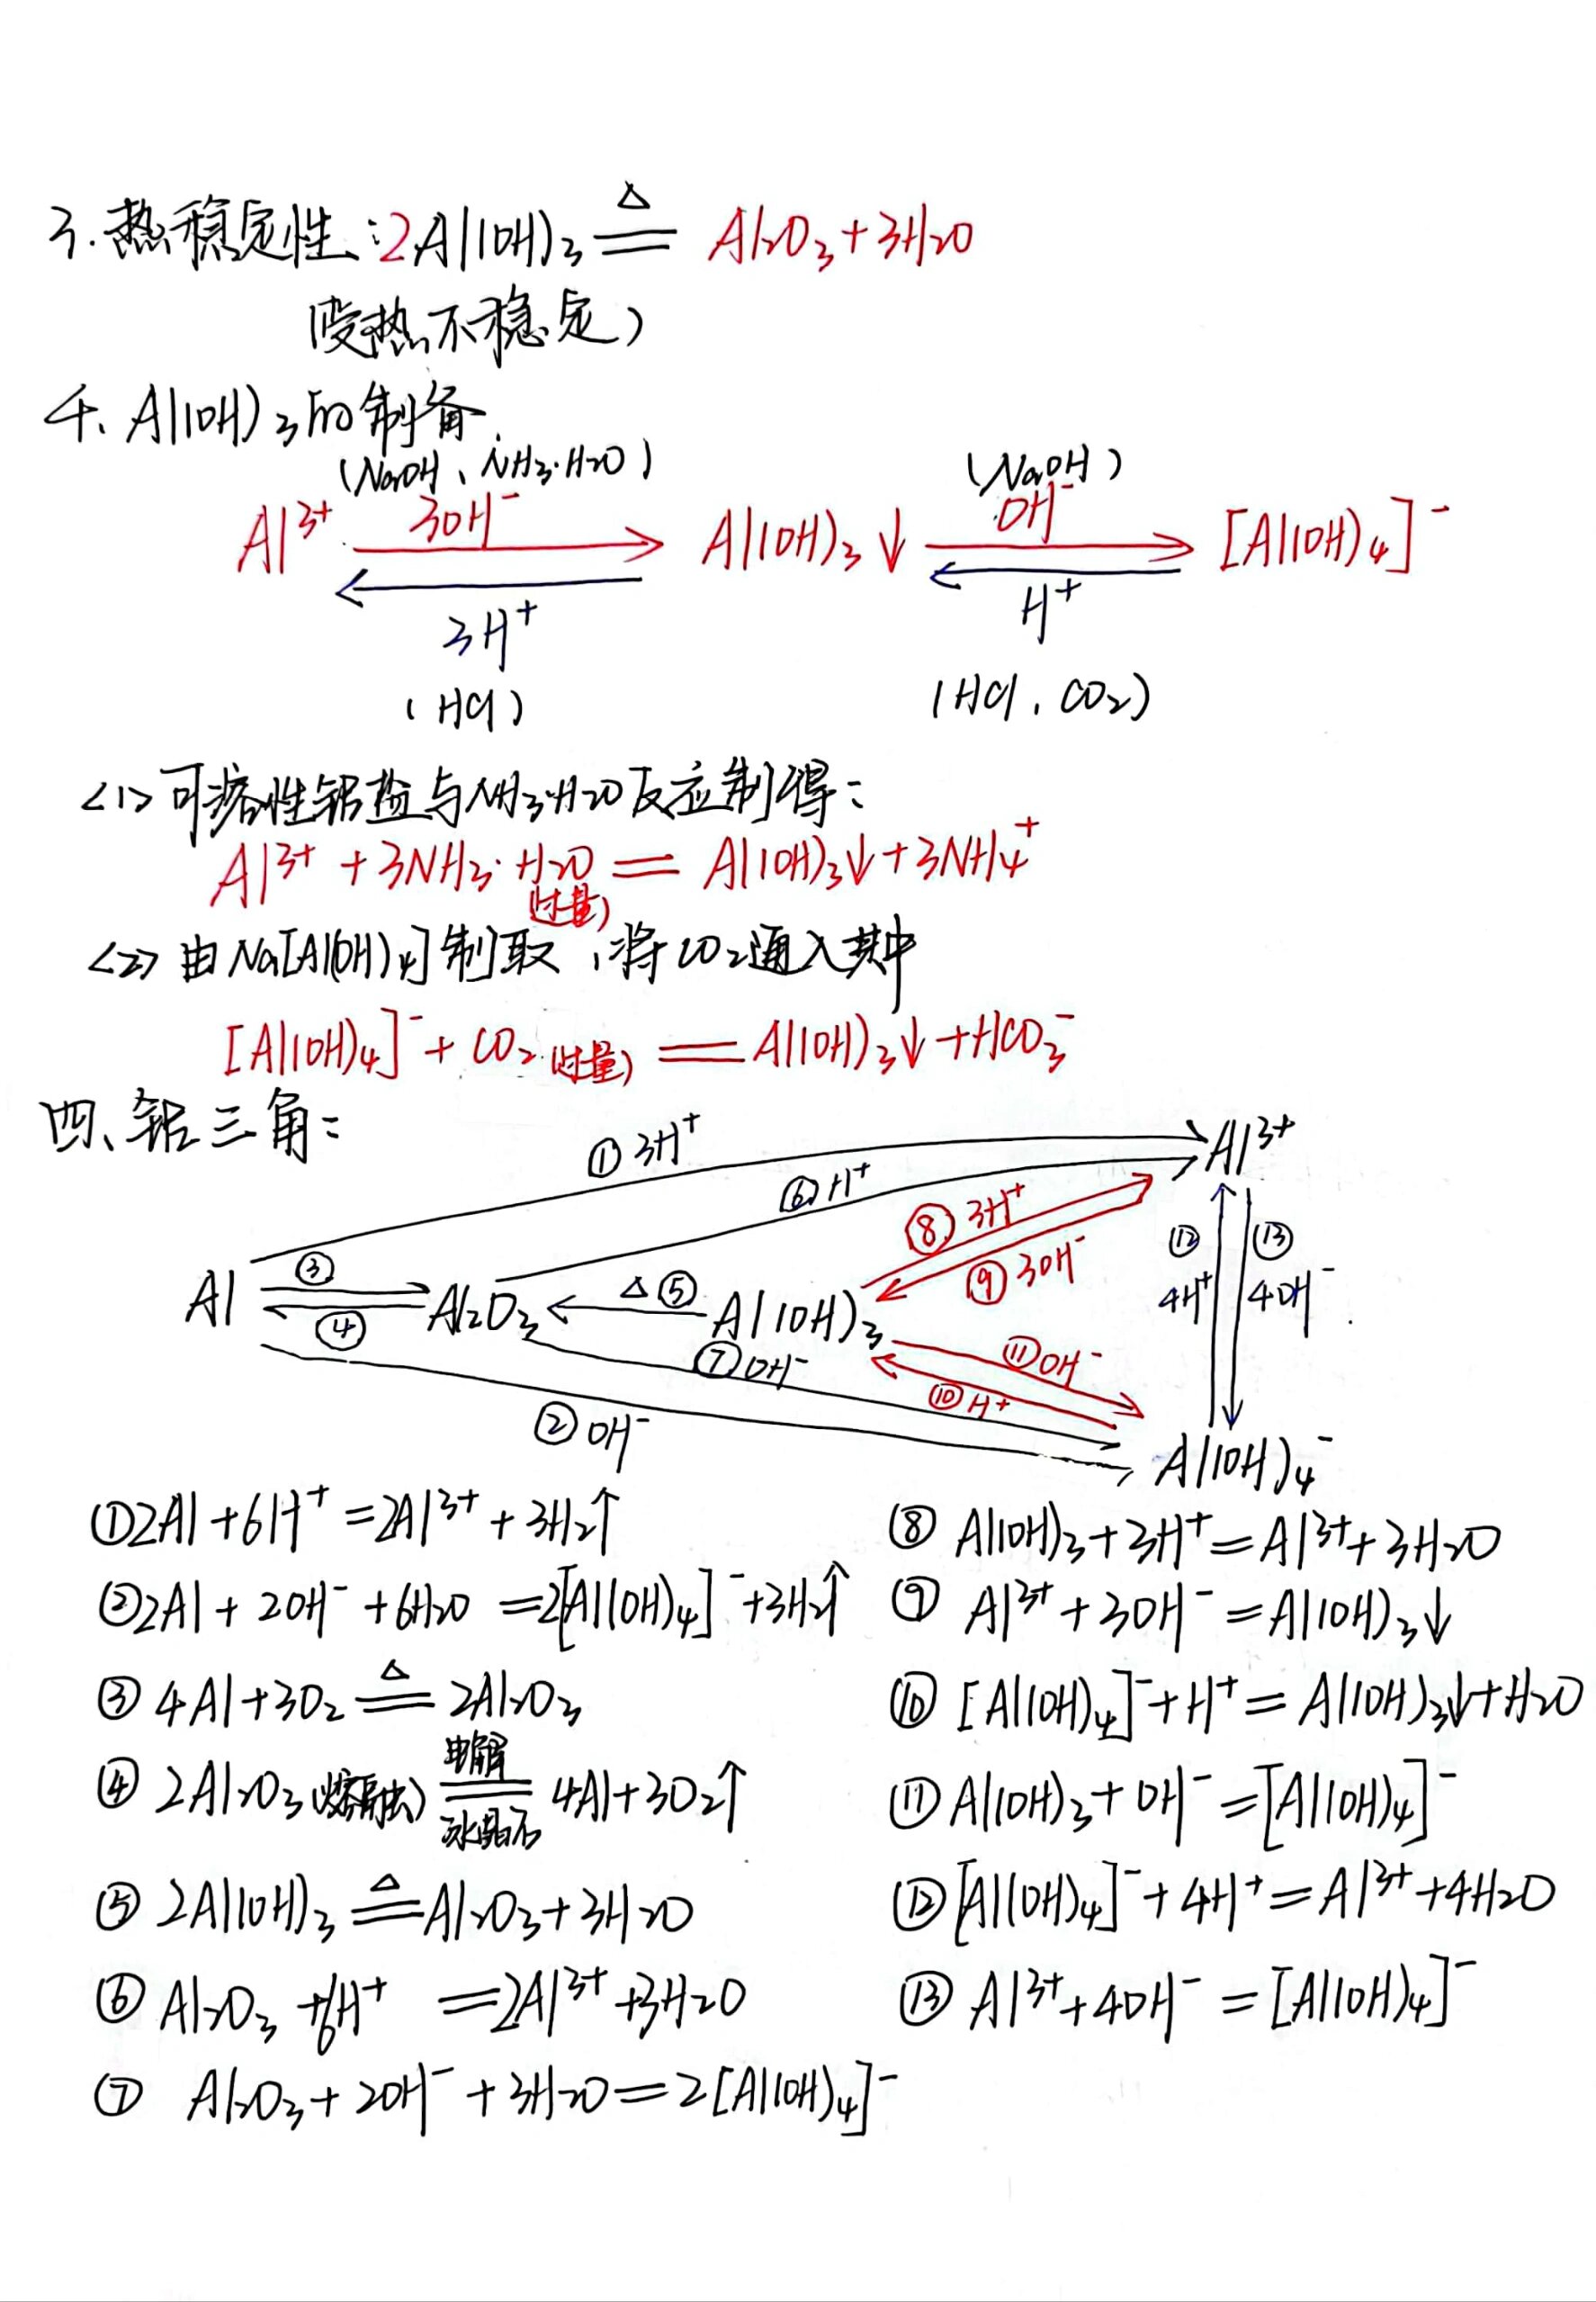 3.热稳定性:2Al(OH)₃ ≜ Al₂O₃+3H₂O
(受热不稳定)
4、Al(OH)₃的制备
(NaOH、NH₃·H₂O) (NaOH)
Al³⁺ 3OH⁻ Al(OH)₃↓ OH⁻ [Al(OH)₄]⁻
3H⁺ H⁺
(HCl) (HCl、CO₂)
<1>可溶性铝盐与NH₃·H₂O反应制得:
Al³⁺+3NH₃·H₂O = Al(OH)₃↓+3NH₄⁺
(过量)
<2>由Na[Al(OH)₄]制取,将CO₂通入其中
[Al(OH)₄]⁻+CO₂(过量) = Al(OH)₃↓+HCO₃⁻
四、铝三角:
①3H⁺ Al³⁺
⑥H⁺
⑧3H⁺
⑨3OH⁻
⑫ ⑬
4H⁺ 4OH⁻
Al ③ Al₂O₃ △⑤ Al(OH)₃
④
⑦OH⁻ ⑪OH⁻
⑩H⁺
②OH⁻ Al(OH)₄⁻
①2Al+6H⁺=2Al³⁺+3H₂↑
②2Al+2OH⁻+6H₂O=2[Al(OH)₄]⁻+3H₂↑
③4Al+3O₂ ≜ 2Al₂O₃
④2Al₂O₃(熔融) 电解 冰晶石 4Al+3O₂↑
⑤2Al(OH)₃ ≜ Al₂O₃+3H₂O
⑥Al₂O₃+6H⁺=2Al³⁺+3H₂O
⑦Al₂O₃+2OH⁻+3H₂O=2[Al(OH)₄]⁻
⑧Al(OH)₃+3H⁺=Al³⁺+3H₂O
⑨Al³⁺+3OH⁻=Al(OH)₃↓
⑩[Al(OH)₄]⁻+H⁺=Al(OH)₃↓+H₂O
⑪Al(OH)₃+OH⁻=[Al(OH)₄]⁻
⑫[Al(OH)₄]⁻+4H⁺=Al³⁺+4H₂O
⑬Al³⁺+4OH⁻=[Al(OH)₄]⁻